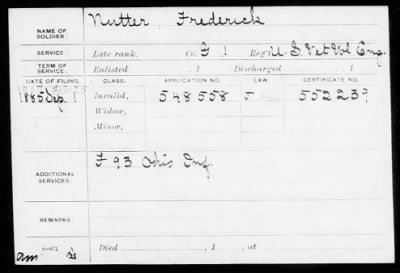 NAME OF SOLDIER: Nutter, Frederick
SERVICE: Late rank, Co. G 1 Reg't U.S. Vet Vol Eng.
TERM OF SERVICE: Enlisted , 1 Discharged , 1
DATE OF FILING. CLASS. APPLICATION NO. LAW CERTIFICATE NO.
1885 Sep. 1 Invalid, 548558 J 552239
Widow,
Minor,
ADDITIONAL SERVICES: F 93 Ohio Inf.
REMARKS
Died , 1 , at